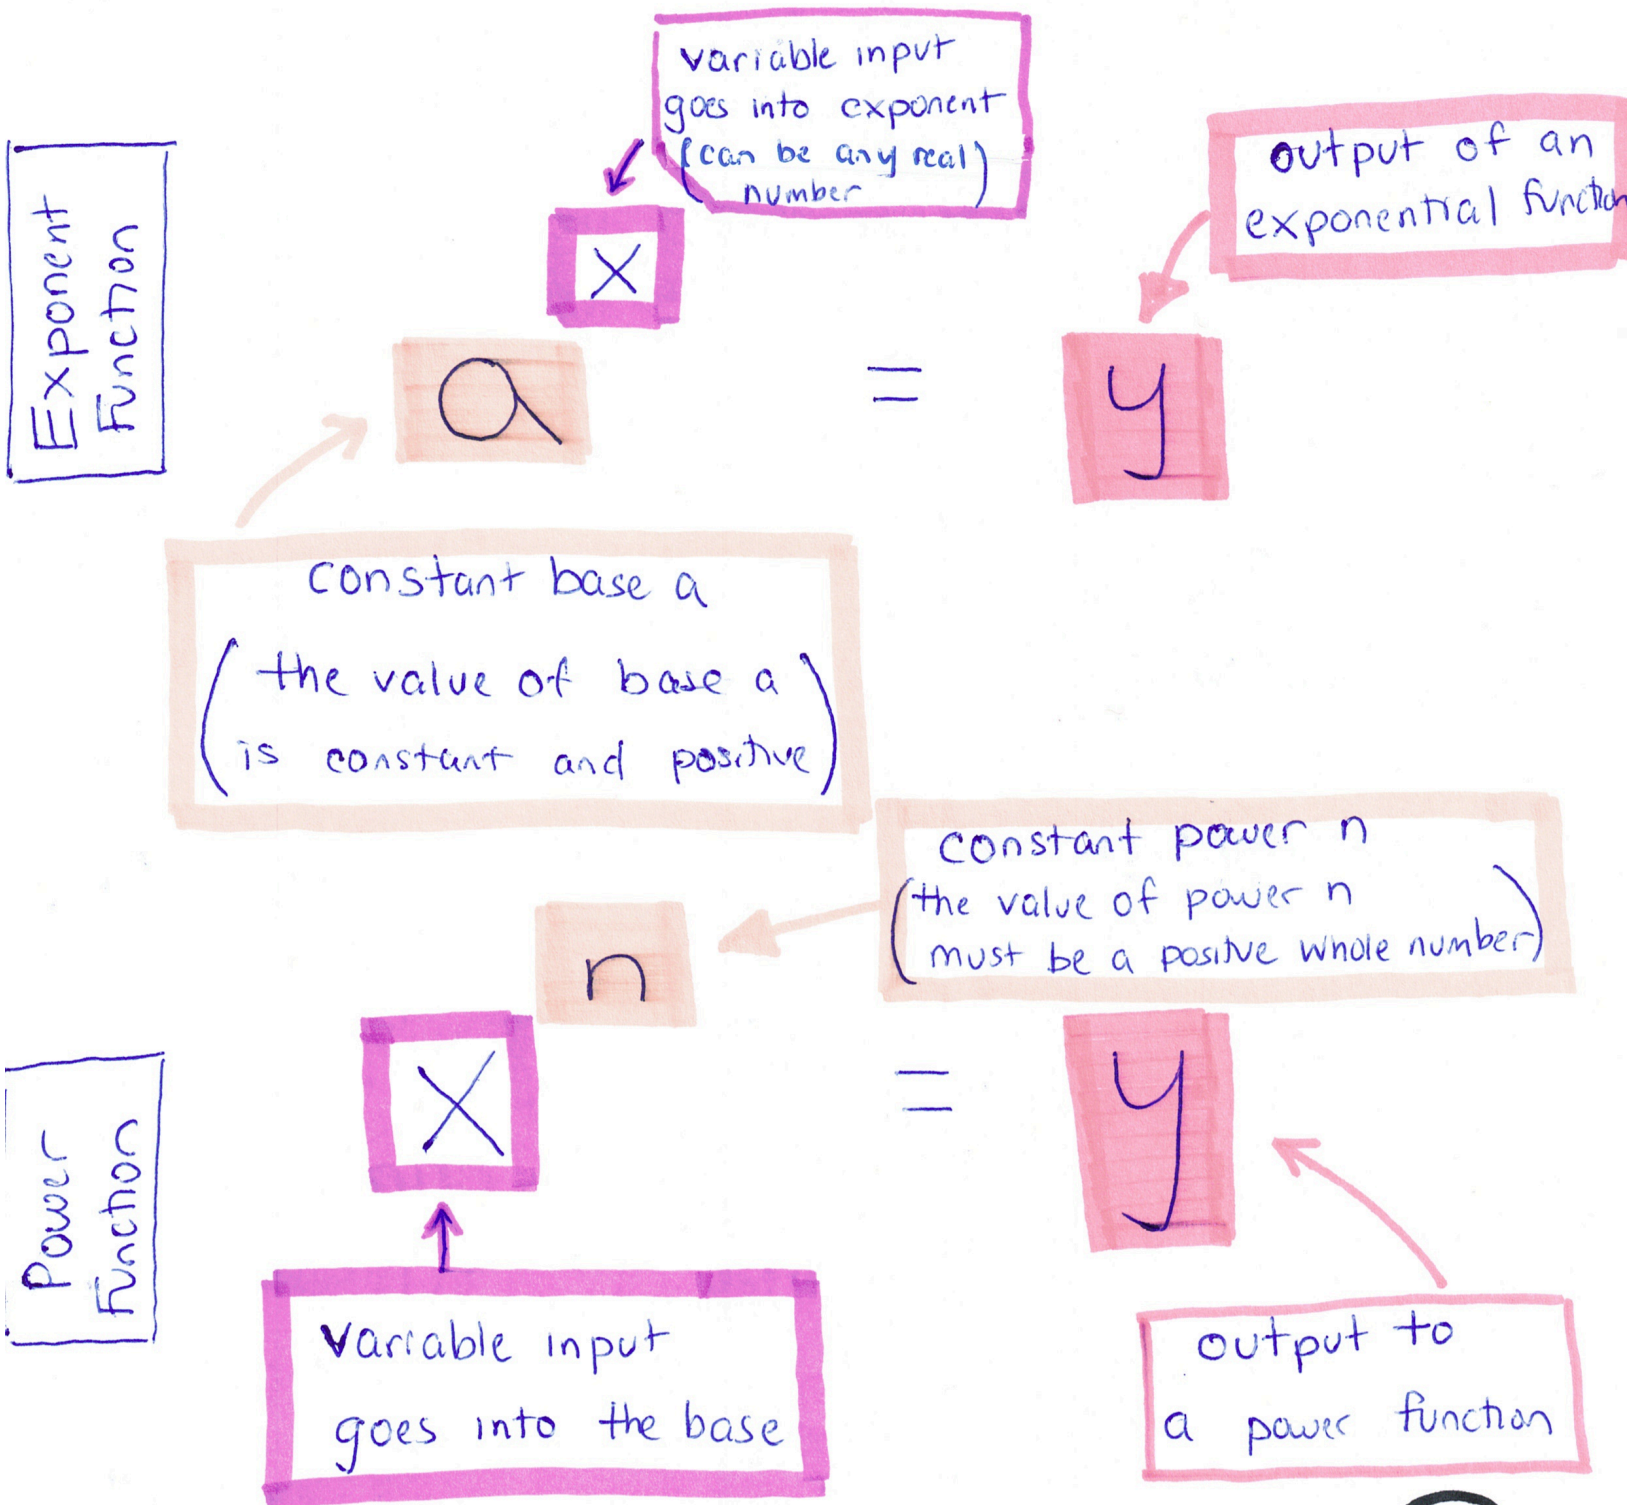 Exponent
Function
variable input
goes into exponent
(can be any real
number)
x
a
=
y
output of an
exponential function
constant base a
(the value of base a
is constant and positive)
Power
Function
constant power n
(the value of power n
must be a positive whole number)
n
x
=
y
variable input
goes into the base
output to
a power function